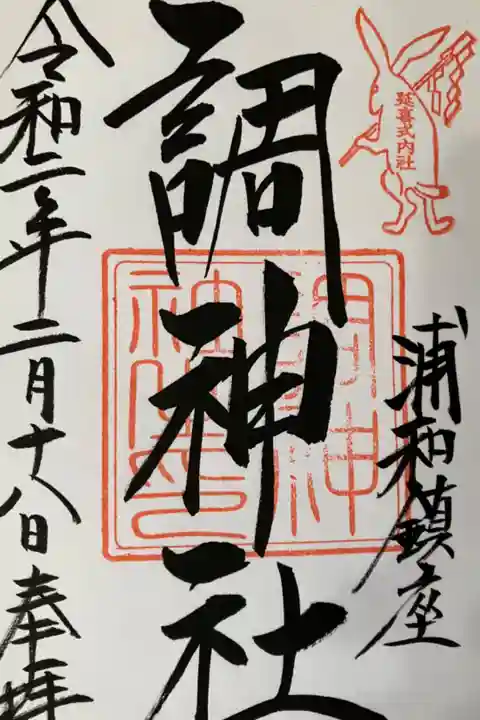 延喜式内社
浦和鎮座
調神社
調神
社之印
令和二年二月十八日奉拝